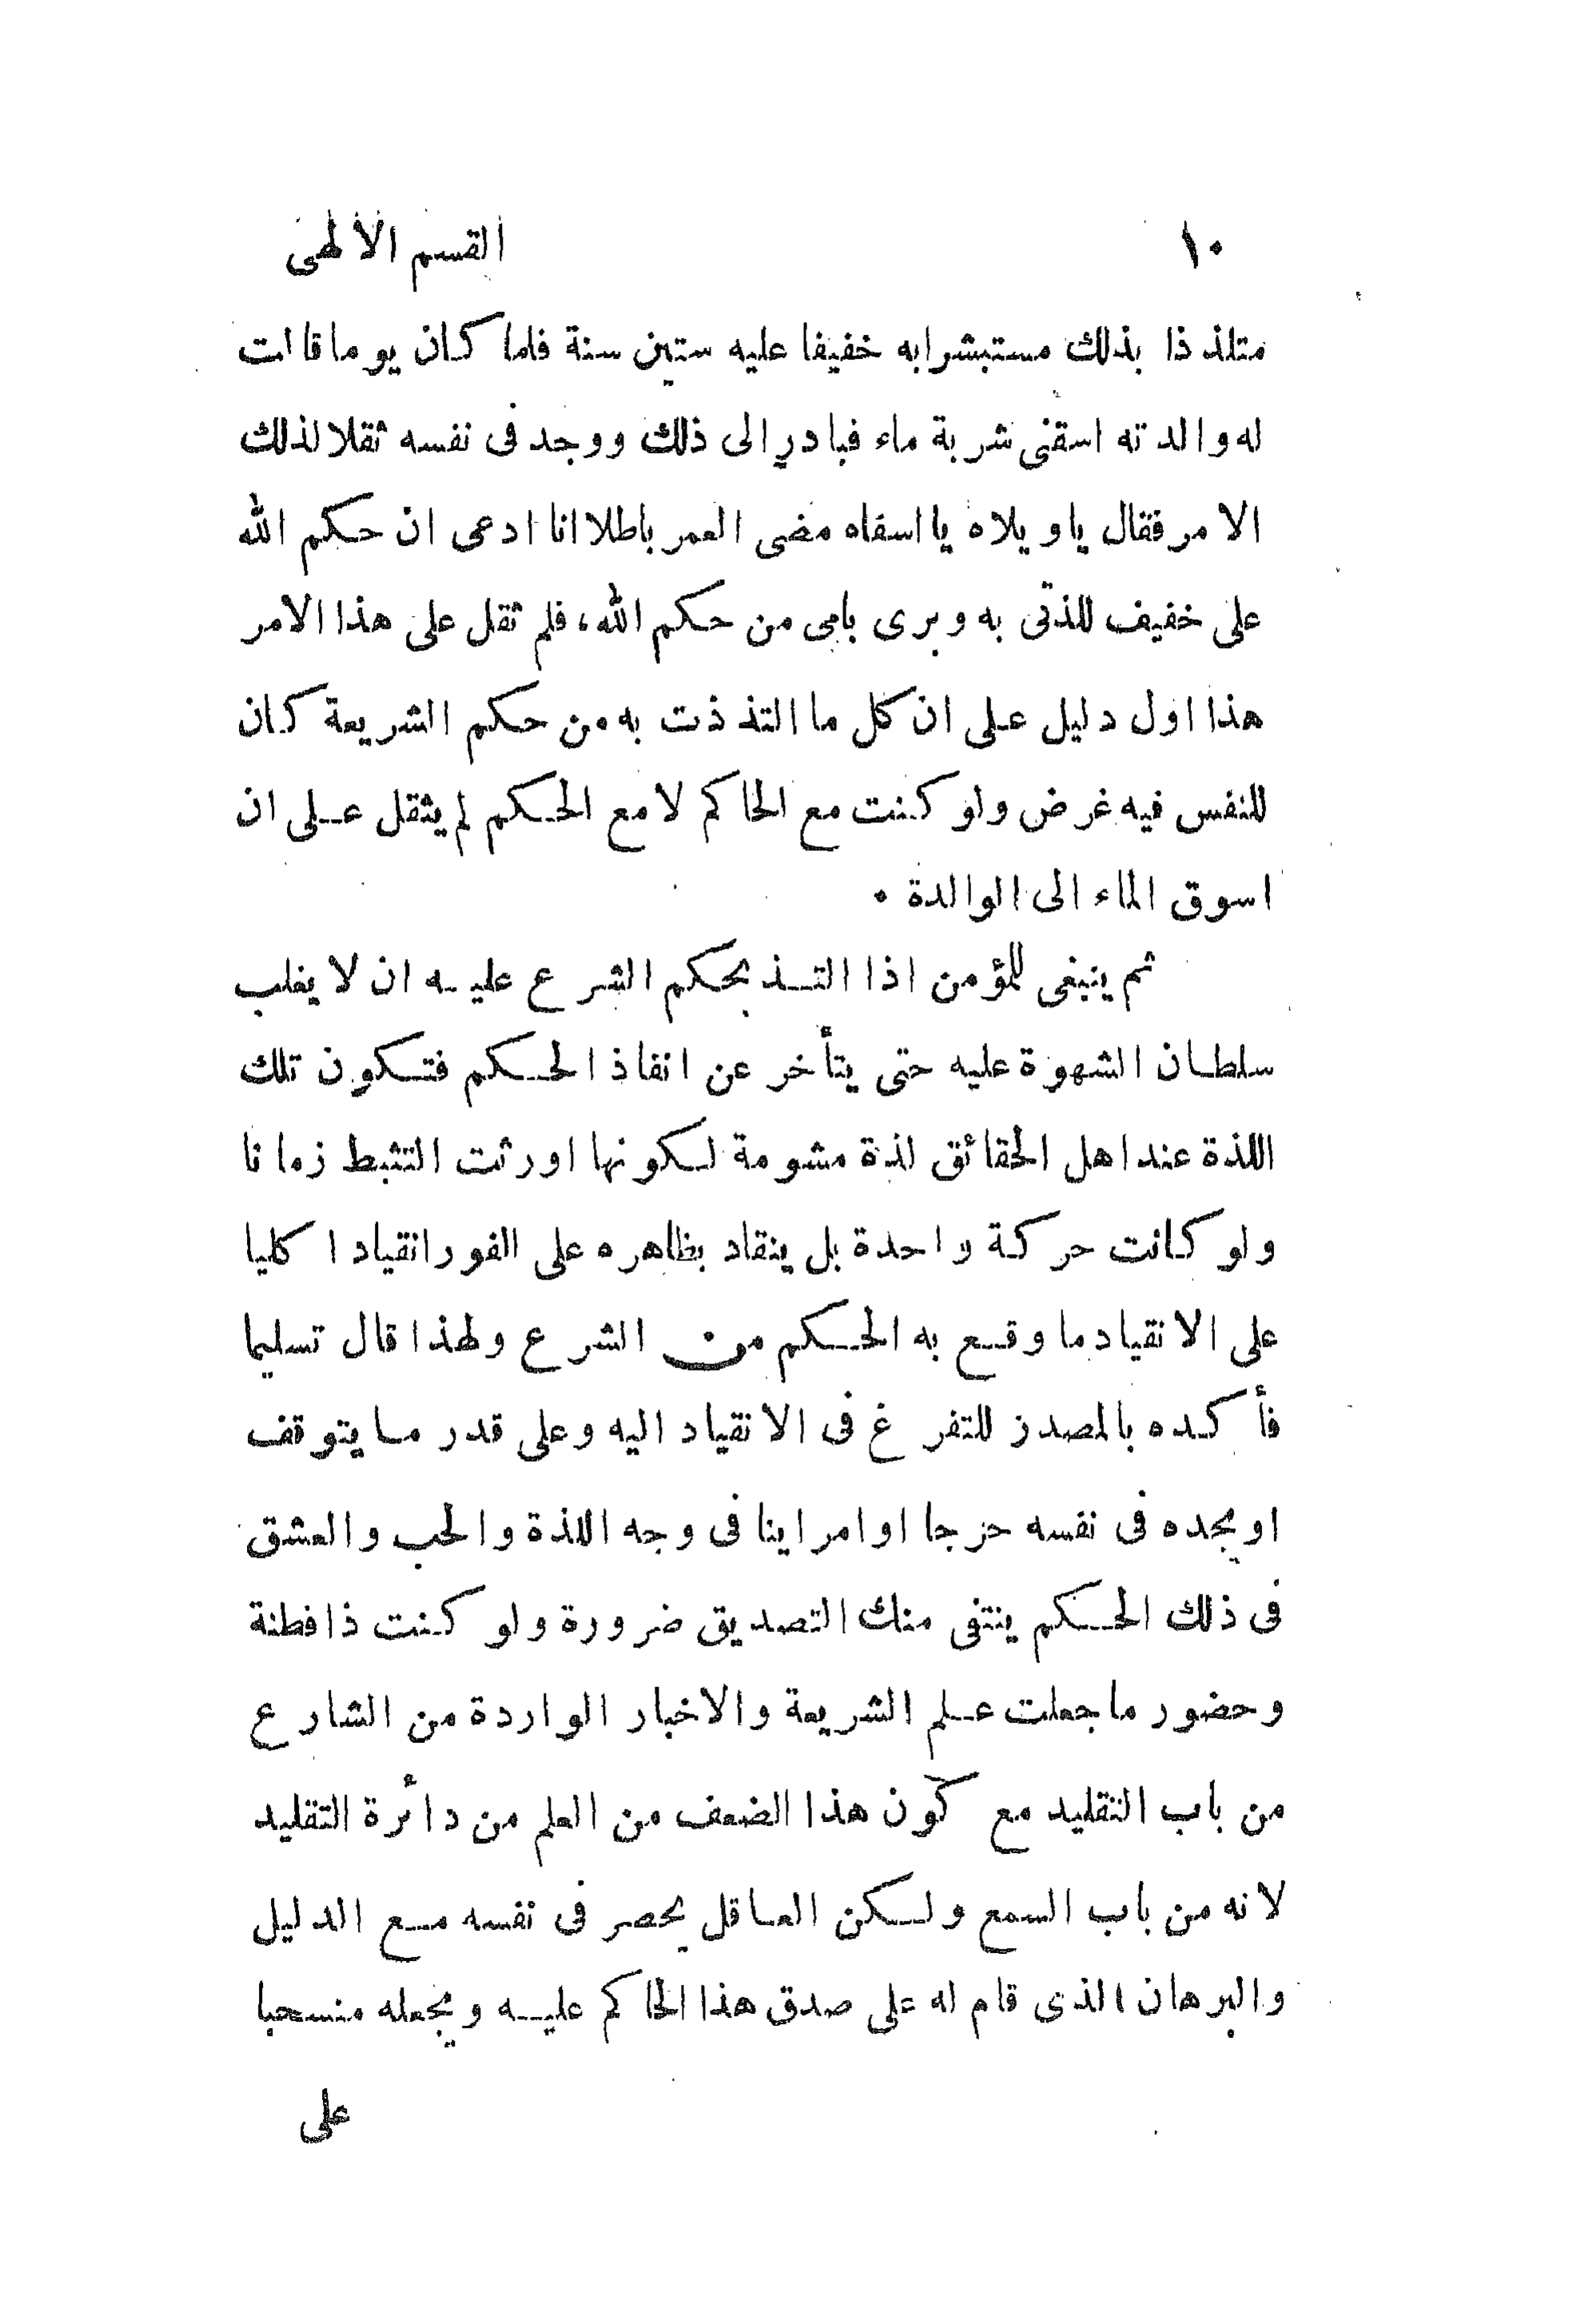 ١٠ القسم الالهى
متلذذا بذلك مستبشرا به خفيفا عليه ستين سنة فلما كان يوما قالت
له والدته اسقنى شربة ماء فبادر الى ذلك ووجد فى نفسه ثقلا لذلك
الامر فقال يا ويلاه يا اسفاه مضى العمر باطلا انا ادعى ان حكم الله
على خفيف للذتى به وبرى بامى من حكم الله، فلم ثقل على هذا الامر
هذا اول دليل على ان كل ما التذذت به من حكم الشريعة كان
للنفس فيه غرض ولو كنت مع الحاكم لا مع الحكم لم يثقل على ان
اسوق الماء الى الوالدة ٠
ثم ينبغى للمؤمن اذا التذ بحكم الشرع عليه ان لا يغلب
سلطان الشهوة عليه حتى يتأخر عن انفاذ الحكم فتكون تلك
اللذة عند اهل الحقائق لذة مشومة لكونها اورثت التثبط زمانا
ولو كانت حركة واحدة بل ينقاد بظاهره على الفور انقيادا كليا
على الانقياد ما وقع به الحكم من الشرع ولهذا قال تسليما
فأكده بالمصدر للتفرغ فى الانقياد اليه وعلى قدر ما يتوقف
او يجده فى نفسه حزجا او امرا ينافى وجه اللذة والحب والعشق
فى ذلك الحكم ينتفى منك التصديق ضرورة ولو كنت ذا فطنة
وحضور ما جعلت علم الشريعة والاخبار الواردة من الشارع
من باب التقليد مع كون هذا الضعف من العلم من دائرة التقليد
لانه من باب السمع ولكن العاقل يحصر فى نفسه مع الدليل
والبرهان الذى قام له على صدق هذا الحاكم عليه ويجعله منسحبا
على